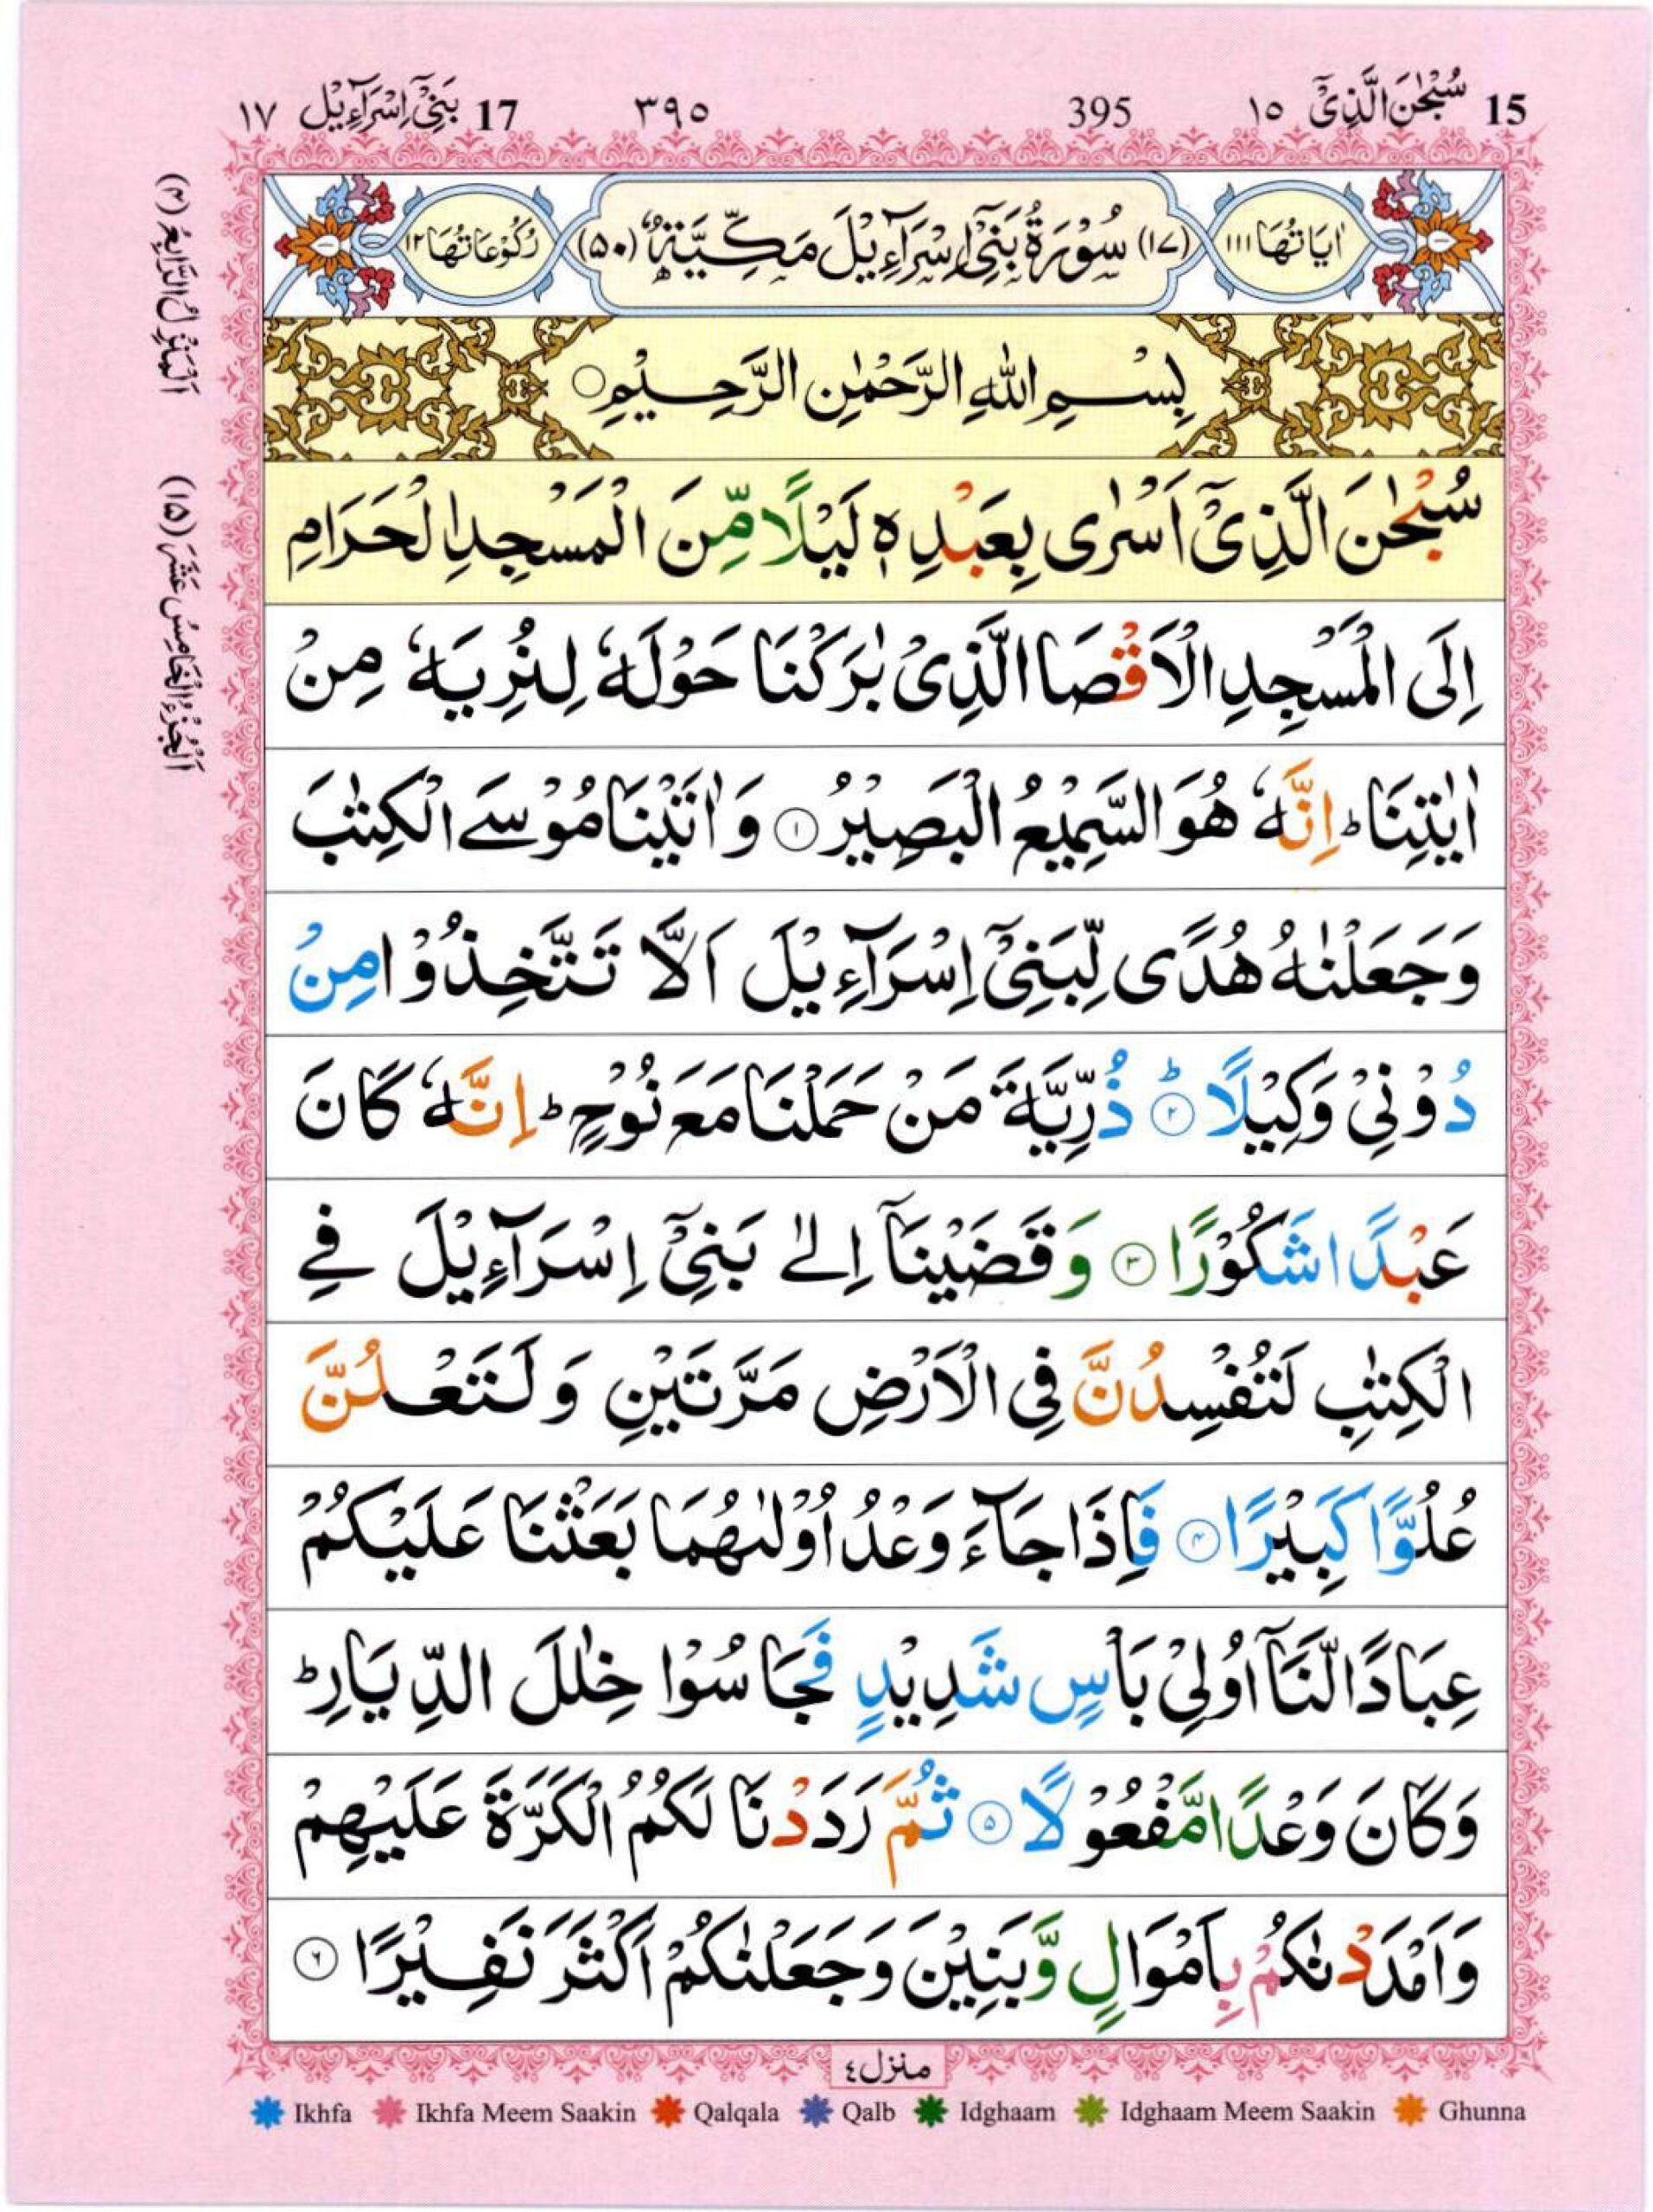 15 سُبْحٰنَ الَّذِیْۤ ١٥ 395 ٣٩٥ 17 بَنِیْۤ اِسْرَآءِیْل ١٧
اٰیَاتُهَا ١١١ (١٧) سُوْرَةُ بَنِیْۤ اِسْرَآءِیْلَ مَكِّیَّةٌ (٥٠) رُكُوْعَاتُهَا ١٢
بِسْمِ اللّٰهِ الرَّحْمٰنِ الرَّحِیْمِ
سُبْحٰنَ الَّذِیْۤ اَسْرٰی بِعَبْدِهٖ لَیْلًا مِّنَ الْمَسْجِدِ الْحَرَامِ
اِلَی الْمَسْجِدِ الْاَقْصَا الَّذِیْ بٰرَكْنَا حَوْلَهٗ لِنُرِیَهٗ مِنْ
اٰیٰتِنَا ؕ اِنَّهٗ هُوَ السَّمِیْعُ الْبَصِیْرُ ١ وَ اٰتَیْنَا مُوْسَے الْكِتٰبَ
وَ جَعَلْنٰهُ هُدًی لِّبَنِیْۤ اِسْرَآءِیْلَ اَلَّا تَتَّخِذُوْا مِنْ
دُوْنِیْ وَكِیْلًا ؕ ٢ ذُرِّیَّةَ مَنْ حَمَلْنَا مَعَ نُوْحٍ ؕ اِنَّهٗ كَانَ
عَبْدًا شَكُوْرًا ٣ وَ قَضَیْنَاۤ اِلٰے بَنِیْۤ اِسْرَآءِیْلَ فِے
الْكِتٰبِ لَتُفْسِدُنَّ فِی الْاَرْضِ مَرَّتَیْنِ وَ لَتَعْلُنَّ
عُلُوًّا كَبِیْرًا ٤ فَاِذَا جَآءَ وَعْدُ اُوْلٰىهُمَا بَعَثْنَا عَلَیْكُمْ
عِبَادًا لَّنَاۤ اُولِیْ بَاْسٍ شَدِیْدٍ فَجَاسُوْا خِلٰلَ الدِّیَارِ ؕ
وَ كَانَ وَعْدًا مَّفْعُوْلًا ٥ ثُمَّ رَدَدْنَا لَكُمُ الْكَرَّةَ عَلَیْهِمْ
وَ اَمْدَدْنٰكُمْ بِاَمْوَالٍ وَّ بَنِیْنَ وَ جَعَلْنٰكُمْ اَكْثَرَ نَفِیْرًا ٦
منزل ٤
Ikhfa Ikhfa Meem Saakin Qalqala Qalb Idghaam Idghaam Meem Saakin Ghunna
اَلْمَنْزِلُ الرَّابِعُ (٤)
اَلْجُزْءُ الْخَامِسُ عَشَرَ (١٥)